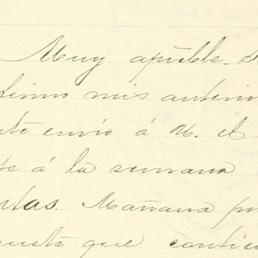 Muy apreble. S
mis anterio
envío á M. el
te á la semana
rtas. Mañana po
que contie